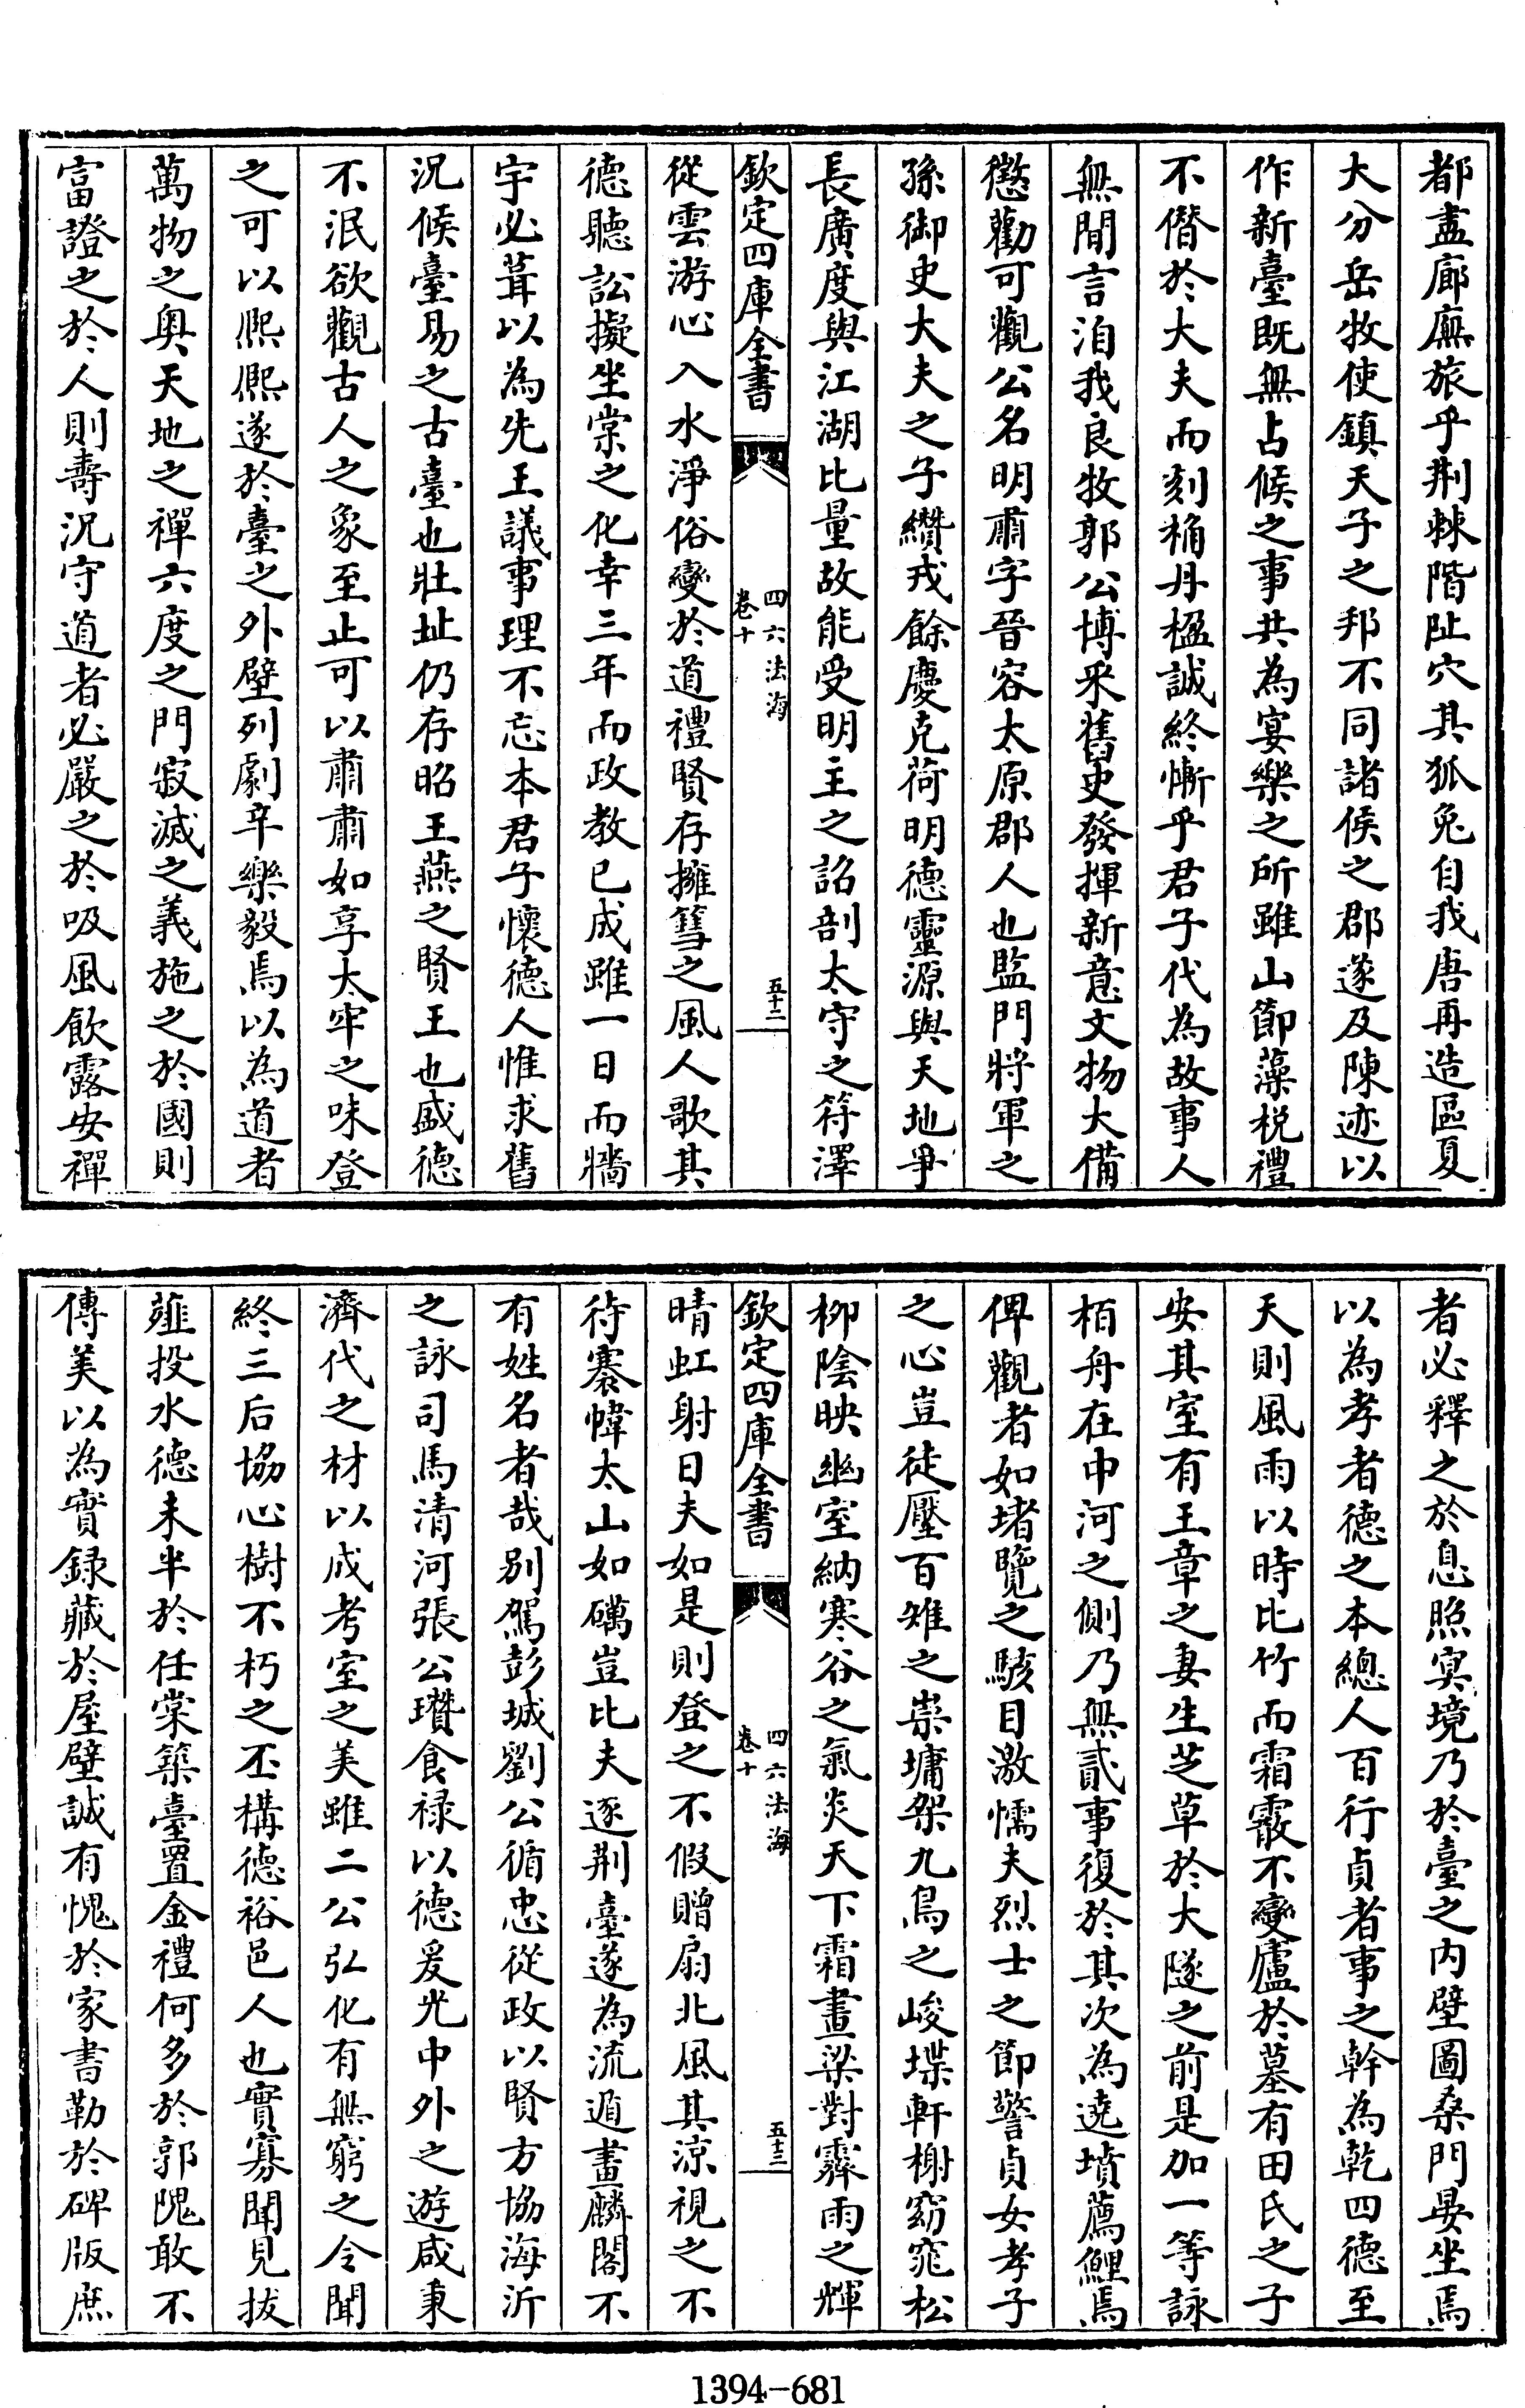 都盡廊廡旅乎荆棘階阯穴其狐兔自我唐再造區夏
大分岳牧使鎮天子之邦不同諸侯之郡遂及陳迹以
作新臺既無占候之事共為宴樂之所雖山節藻梲禮
不僭於大夫而刻桷丹楹誠終慚乎君子代為故事人
無間言洎我良牧郭公博采舊史發揮新意文物大備
懲勸可觀公名明肅字晉容太原郡人也監門將軍之
孫御史大夫之子纘戎餘慶克荷明德靈源與天地爭
長廣度與江湖比量故能受明主之詔剖太守之符澤
欽定四庫全書
四六法海
卷十
五十二
從雲游心入水淨俗變於道禮賢存擁篲之風人歌其
德聽訟擬坐棠之化幸三年而政教已成雖一日而牆
宇必葺以為先王議事理不忘本君子懷德人惟求舊
況候臺易之古臺也壯址仍存昭王燕之賢王也盛德
不泯欲觀古人之象至止可以肅肅如享太牢之味登
之可以熈熈遂於臺之外壁列劇辛樂毅焉以為道者
萬物之奥天地之禪六度之門寂滅之義施之於國則
富證之於人則壽況守道者必嚴之於吸風飲露安禪
者必釋之於息照㝠境乃於臺之内壁圖桑門晏坐焉
以為孝者德之本總人百行貞者事之幹為乾四德至
天則風雨以時比竹而霜霰不變廬於墓有田氏之子
安其室有王章之妻生芝草於大隧之前是加一等詠
栢舟在中河之側乃無貳事復於其次為遶墳薦鯉焉
俾觀者如堵覽之駭目激懦夫烈士之節警貞女孝子
之心豈徒壓百雉之崇墉架九鳥之峻堞軒榭窈窕松
柳陰映幽室納寒谷之氣炎天下霜畫梁對霽雨之輝
欽定四庫全書
四六法海
卷十
五十三
晴虹射日夫如是則登之不假贈扇北風其涼視之不
待褰幃太山如礪豈比夫逐荆臺遂為流遁畫麟閣不
有姓名者哉别駕彭城劉公循忠從政以賢方協海沂
之詠司馬清河張公瓚食禄以德爰光中外之遊咸秉
濟代之材以成考室之美雖二公弘化有無窮之令聞
終三后協心樹不朽之丕構德裕邑人也實寡聞見拔
薤投水德未半於任棠築臺置金禮何多於郭隗敢不
傳美以為實録藏於屋壁誠有愧於家書勒於碑版庶
1394-681